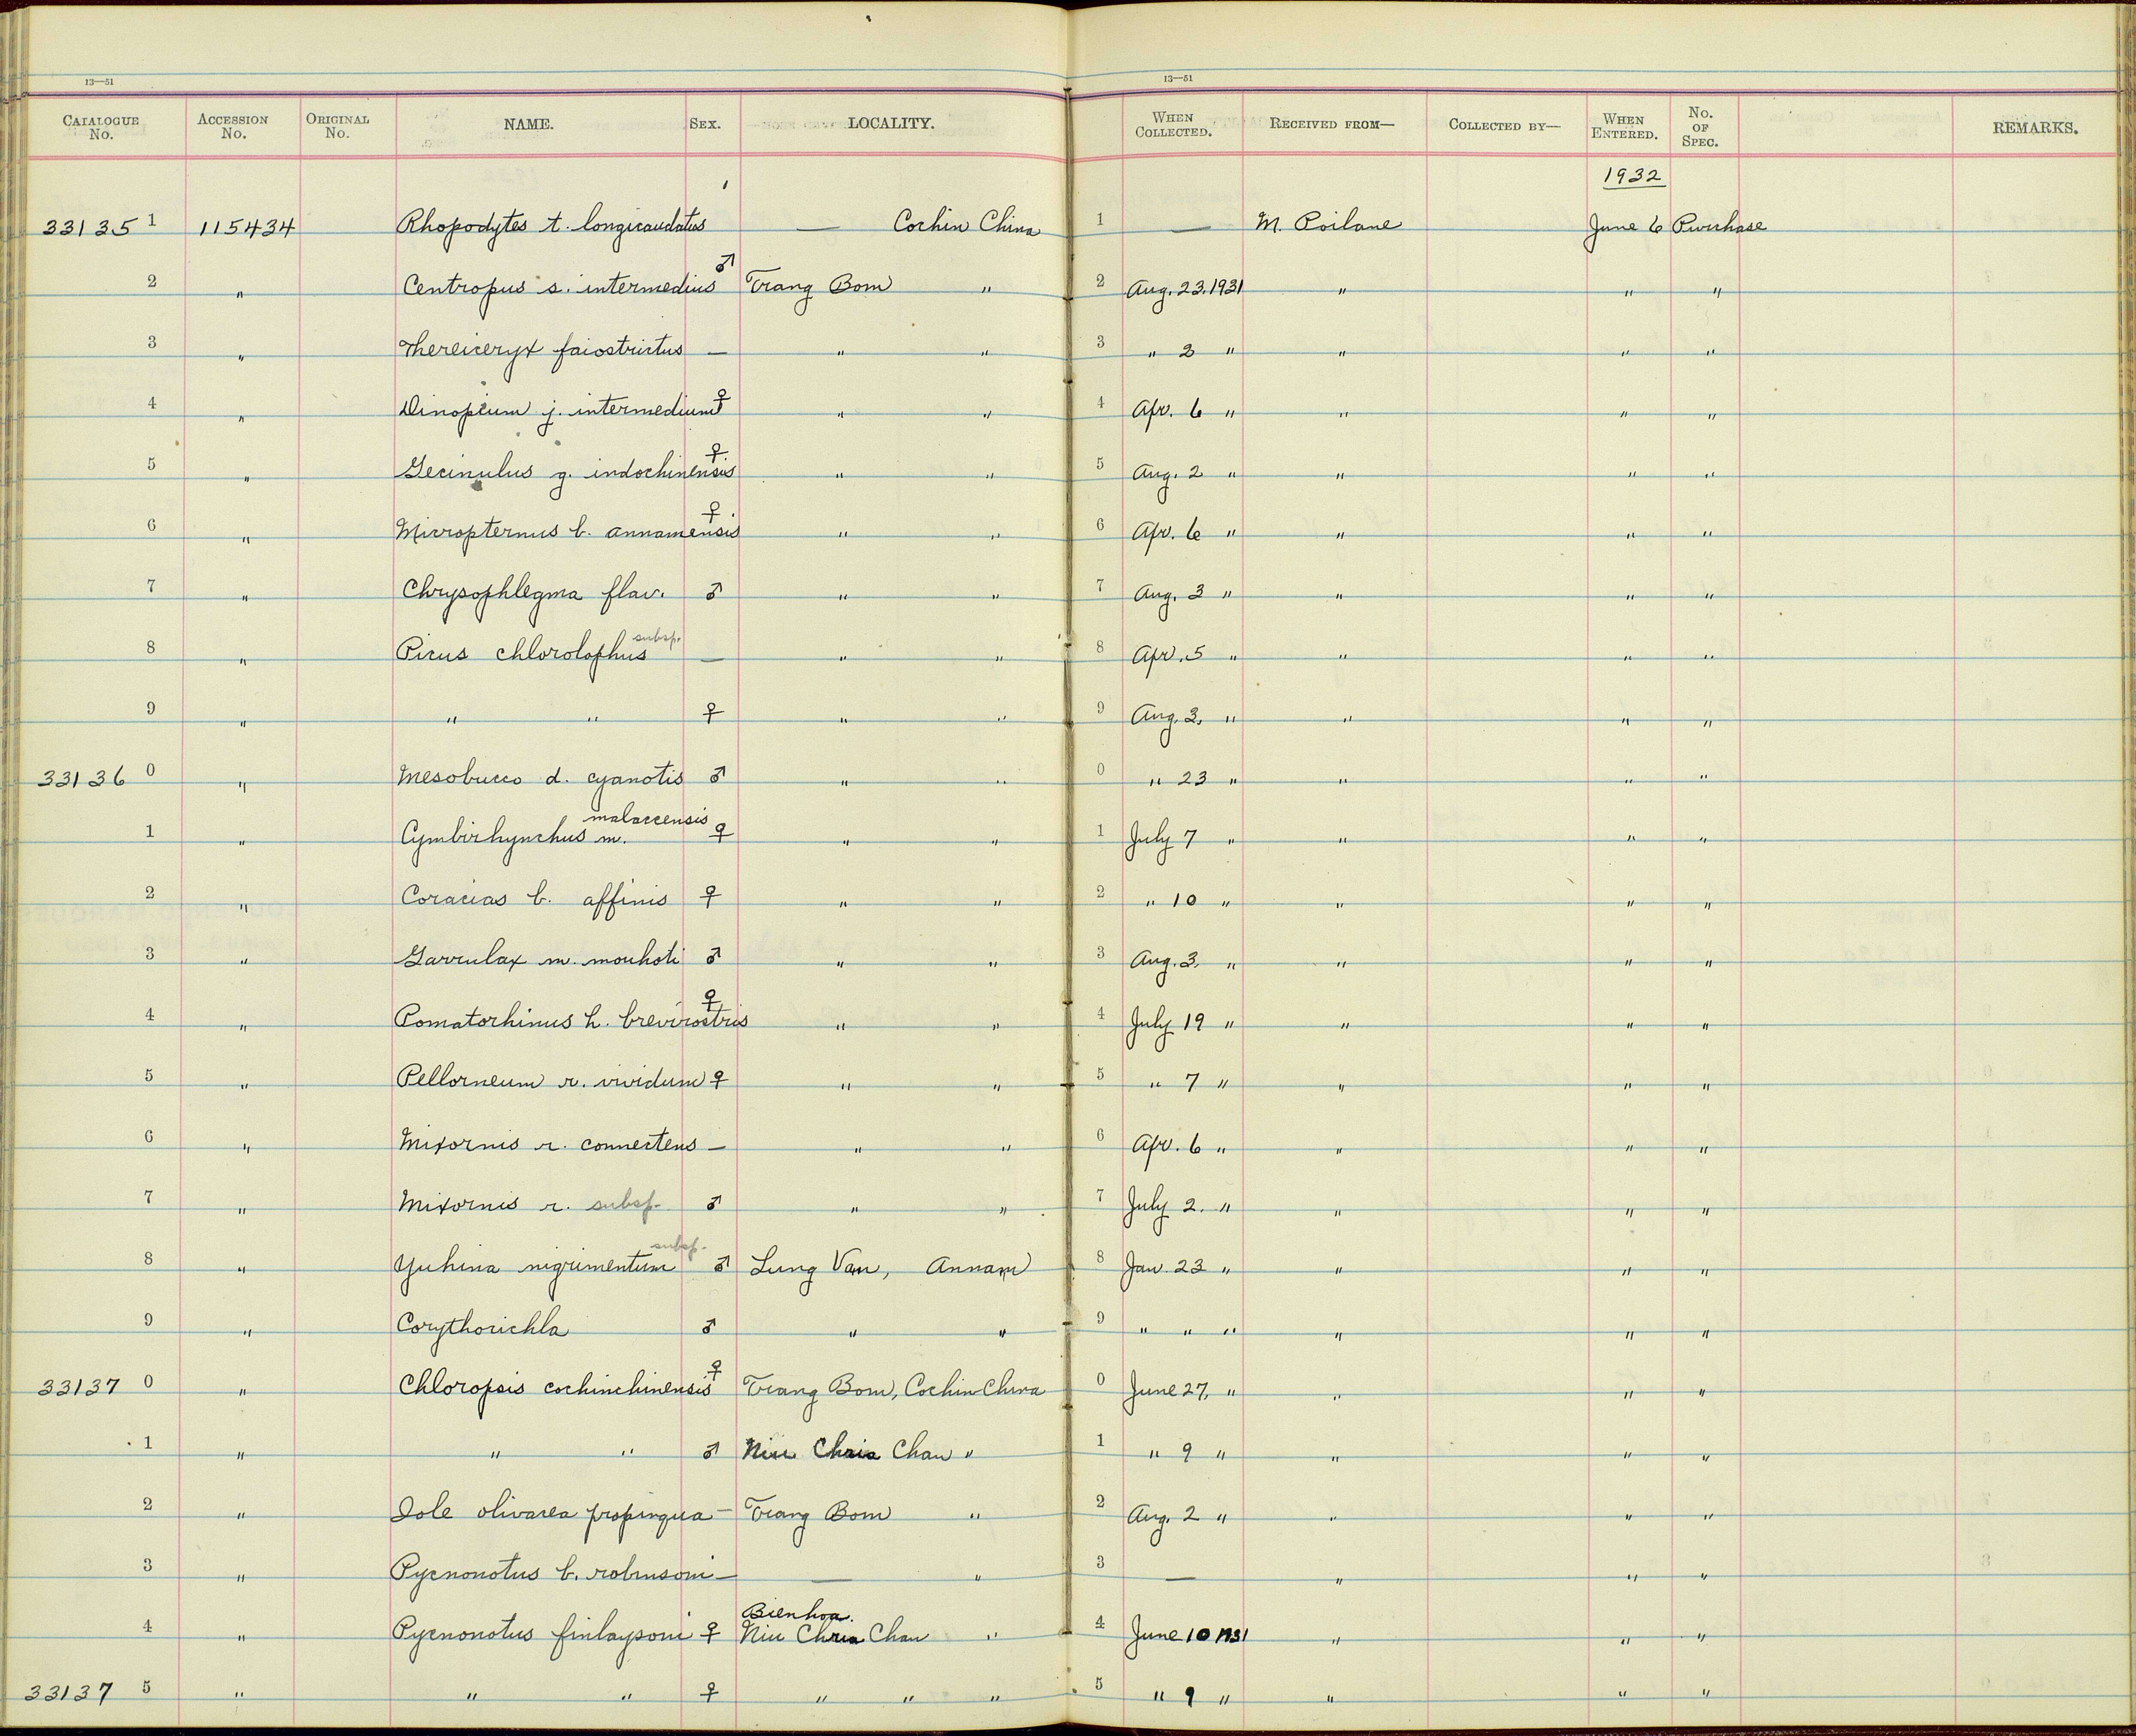 13—51 13—51
CATALOGUE No. ACCESSION No. ORIGINAL No. NAME. SEX. LOCALITY. WHEN COLLECTED. RECEIVED FROM— COLLECTED BY— WHEN ENTERED. No. OF SPEC. REMARKS.
1932
33135 1 115434 Rhopodytes t. longicaudatus — Cochin China 1 — M. Poilane June 6 Purchase
2 " Centropus s. intermedius ♂ Trang Bom " 2 Aug. 23. 1931 " " "
3 " Thereiceryx faiostrictus — " " 3 " 2 " " " "
4 " Dinopium j. intermedium ♀ " " 4 Apr. 6 " " " "
5 " Gecinulus g. indochinensis ♀ " " 5 Aug. 2 " " " "
6 " Micropternus b. annamensis ♀ " " 6 Apr. 6 " " " "
7 " Chrysophlegma flav. ♂ " " 7 Aug. 3 " " " "
8 " Picus chlorolophus subsp. — " " 8 Apr. 5 " " " "
9 " " " ♀ " " 9 Aug. 3. " " " "
33136 0 " Mesobucco d. cyanotis ♂ " " 0 " 23 " " " "
1 " Cymbirhynchus m. malaccensis ♀ " " 1 July 7 " " " "
2 " Coracias b. affinis ♀ " " 2 " 10 " " " "
3 " Garrulax m. mouhoti ♂ " " 3 Aug. 3. " " " "
4 " Pomatorhinus h. brevirostris ♀ " " 4 July 19 " " " "
5 " Pellorneum r. vividum ♀ " " 5 " 7 " " " "
6 " Mixornis r. connectens — " " 6 Apr. 6 " " " "
7 " Mixornis r. subsp. ♂ " " 7 July 2. " " " "
8 " Yuhina nigrimentum subsp. ♂ Lung Van, Annam 8 Jan. 23 " " " "
9 " Corythocichla ♂ " " 9 " " " " " "
33137 0 " Chloropsis cochinchinensis ♀ Trang Bom, Cochin China 0 June 27, " " " "
1 " " " ♂ Niu Chaia Chan " 1 " 9 " " " "
2 " Iole olivacea propinqua — Trang Bom " 2 Aug. 2 " " " "
3 " Pycnonotus b. robinsoni — — " 3 — " " "
Bienhoa.
4 " Pycnonotus finlaysoni ♀ Niu Chaia Chan " 4 June 10 1931 " " "
33137 5 " " " ♀ " " " 5 " 9 " " " "